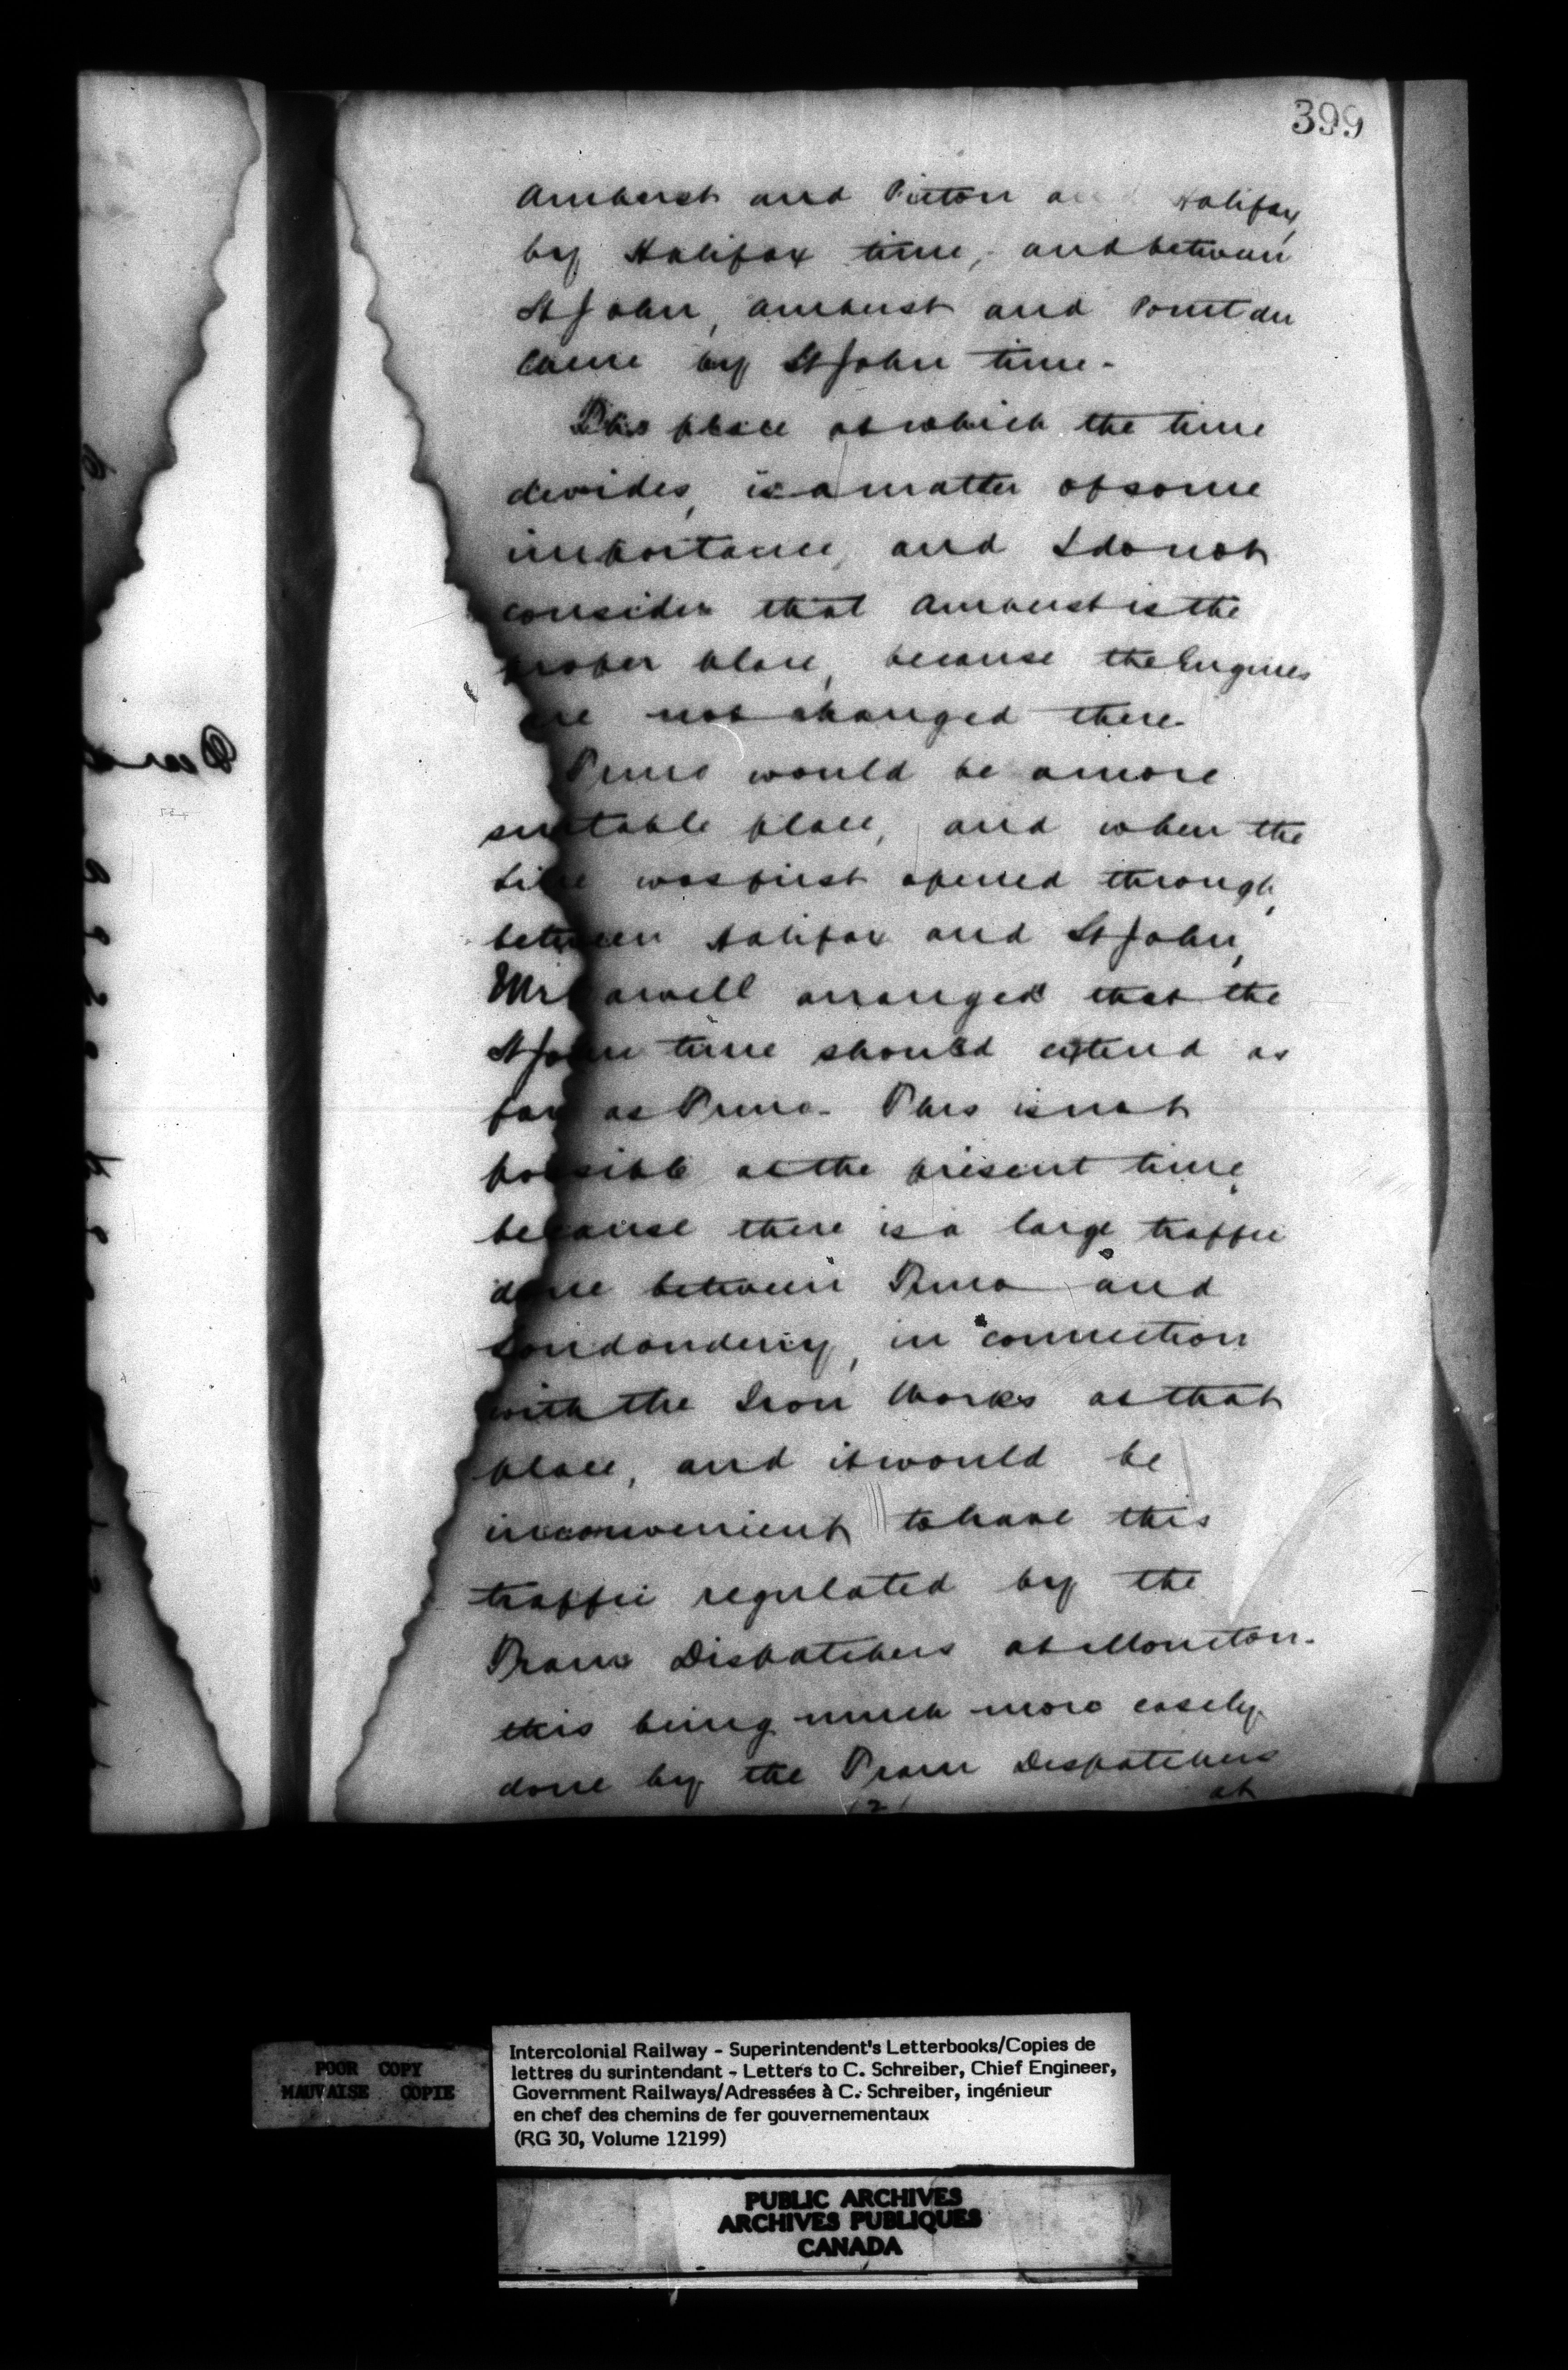 399
Amherst and Pictou and Halifax,
by Halifax time, and between
St John, Amherst and Point du
Chene by St John time.
This place at which the time
devides, is a matter of some
importance, and I do not
consider that Amherst is the
proper place, because the Engines
are not changed there.
Truro would be a more
suitable place, and when the
Line was first opened through,
between Halifax and St John,
Mr Carvell arranged that the
St John time should extend as
far as Truro. This is not
possible at the present time,
because there is a large traffic
done between Truro and
Londonderry, in connection
with the Iron Works at that
place, and it would be
inconvenient to have this
traffic regulated by the
Train Dispatchers at Moncton.
this being much more easily
done by the Train Dispatchers
at
POOR COPY
MAUVAISE COPIE
Intercolonial Railway - Superintendent's Letterbooks/Copies de
lettres du surintendant - Letters to C. Schreiber, Chief Engineer,
Government Railways/Adressées à C. Schreiber, ingénieur
en chef des chemins de fer gouvernementaux
(RG 30, Volume 12199)
PUBLIC ARCHIVES
ARCHIVES PUBLIQUES
CANADA